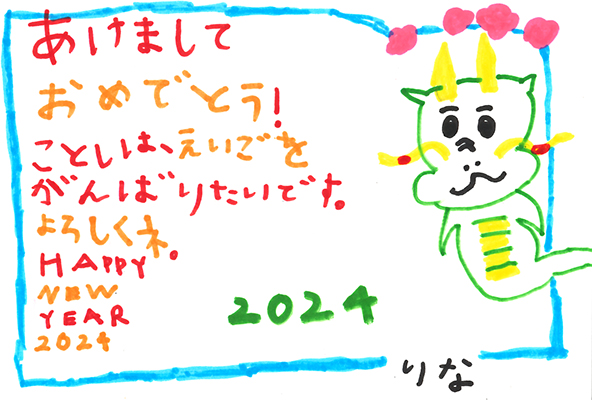 あけまして
おめでとう!
ことしは、えいごを
がんばりたいです。
よろしくネ。
HAPPY
NEW
YEAR
2024
2024
りな